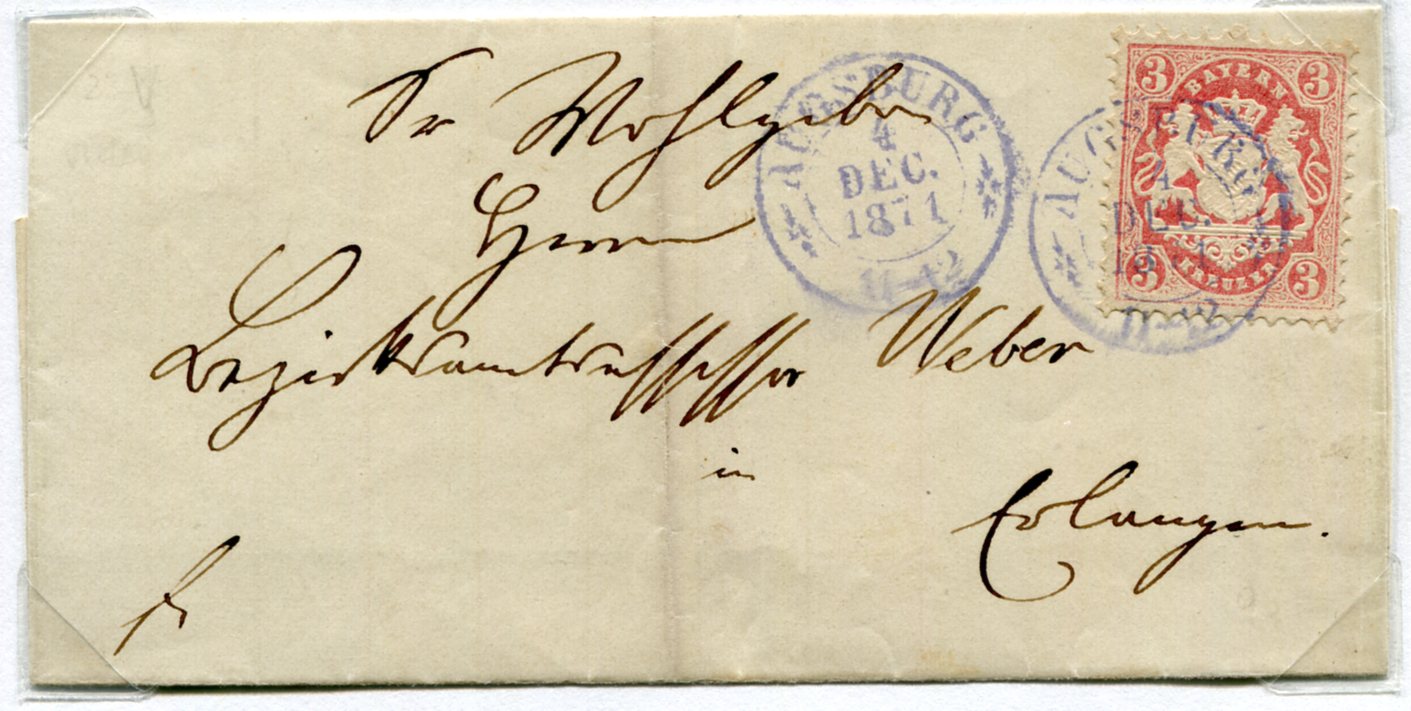 Sr Wohlgebor
Herrn
Bezirksamtsassessor Weber
in
Erlangen.
fr
AUGSBURG
4
DEC.
1871
11-12
3 BAYERN 3
3 KREUZER 3
AUGSBURG
4
DEC.
1871
11-12